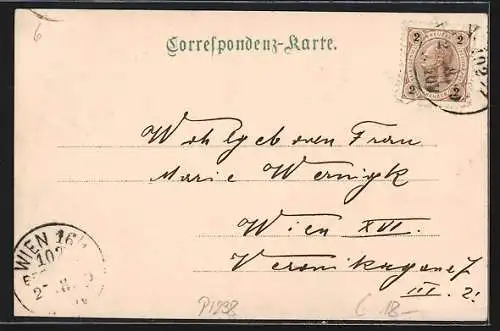 6
Correspondenz-Karte.
2 2
2 2
Wohlgeboren Frau
Marie Wernigk
Wien XVI.
Veronikagasse 7
III. 2.
WIEN 16/1
P1998
18-